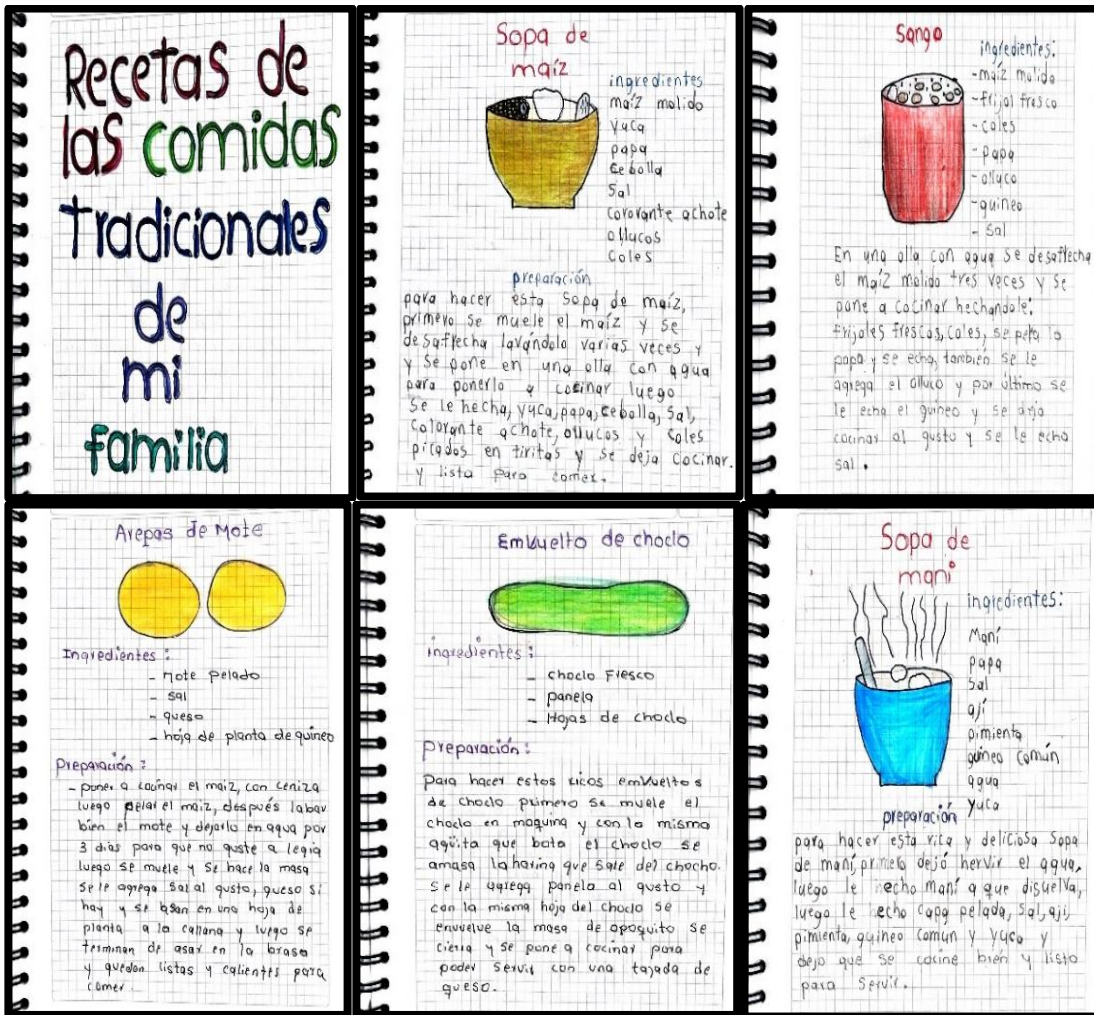 Recetas de
las comidas
tradicionales
de
mi
familia
Sopa de
maíz
ingredientes
maíz molido
yuca
papa
cebolla
Sal
cororante achote
ollucos
coles
preparación
para hacer esta Sopa de maíz,
primero se muele el maíz y se
desaflecha lavándolo varias veces y
y se pone en una olla con agua
para ponerlo a cocinar luego
Se le hecha, yuca, papa, cebolla, Sal,
Colorante achote, ollucos y coles
picados en tiritas y se deja cocinar.
y lista para comer.
Sango
ingredientes:
-maíz molido
-frijol fresco
-coles
-papa
-olluco
-guineo
-Sal
En una olla con agua se desaflecha
el maíz molido tres veces y se
pone a cocinar hechandole:
frijoles frescos, coles, se pela la
papa y se echa, también se le
agrega el olluco y por último se
le echa el guineo y se deja
cocinar al gusto y se le echa
sal.
Arepas de Mote
Ingredientes:
- Mote pelado
- sal
- queso
- hoja de planta de guineo
Preparación:
- poner a cocinar el maiz, con ceniza
luego pelar el maiz, después labar
bien el mote y dejarlo en agua por
3 dias para que no guste a legia
luego se muele y se hace la masa
se le agrega sal al gusto, queso si
hay y se asan en una hoja de
planta a la callana y luego se
terminan de asar en la brasa
y quedan listas y calientes para
comer.
Emvuelto de choclo
ingredientes:
- choclo Fresco
- panela
- Hojas de choclo
Preparación:
Para hacer estos ricos emvueltos
de choclo primero se muele el
choclo en maquina y con la misma
agüita que bota el choclo se
amasa la harina que sale del chocho.
Se le agrega panela al gusto y
con la misma hoja del choclo se
envuelve la masa de apoquito se
cierra y se pone a cocinar para
poder servir con una tajada de
queso.
Sopa de
mani
ingredientes:
Maní
papa
Sal
ají
pimienta
guineo común
agua
yuca
preparación
para hacer esta rica y deliciosa Sopa
de maní, primero dejó hervir el agua,
luego le hecho maní a que disuelva,
luego le echo papa pelada, Sal, aji,
pimienta, guineo común y yuca y
dejo que se cocine bien y listo
para servir.